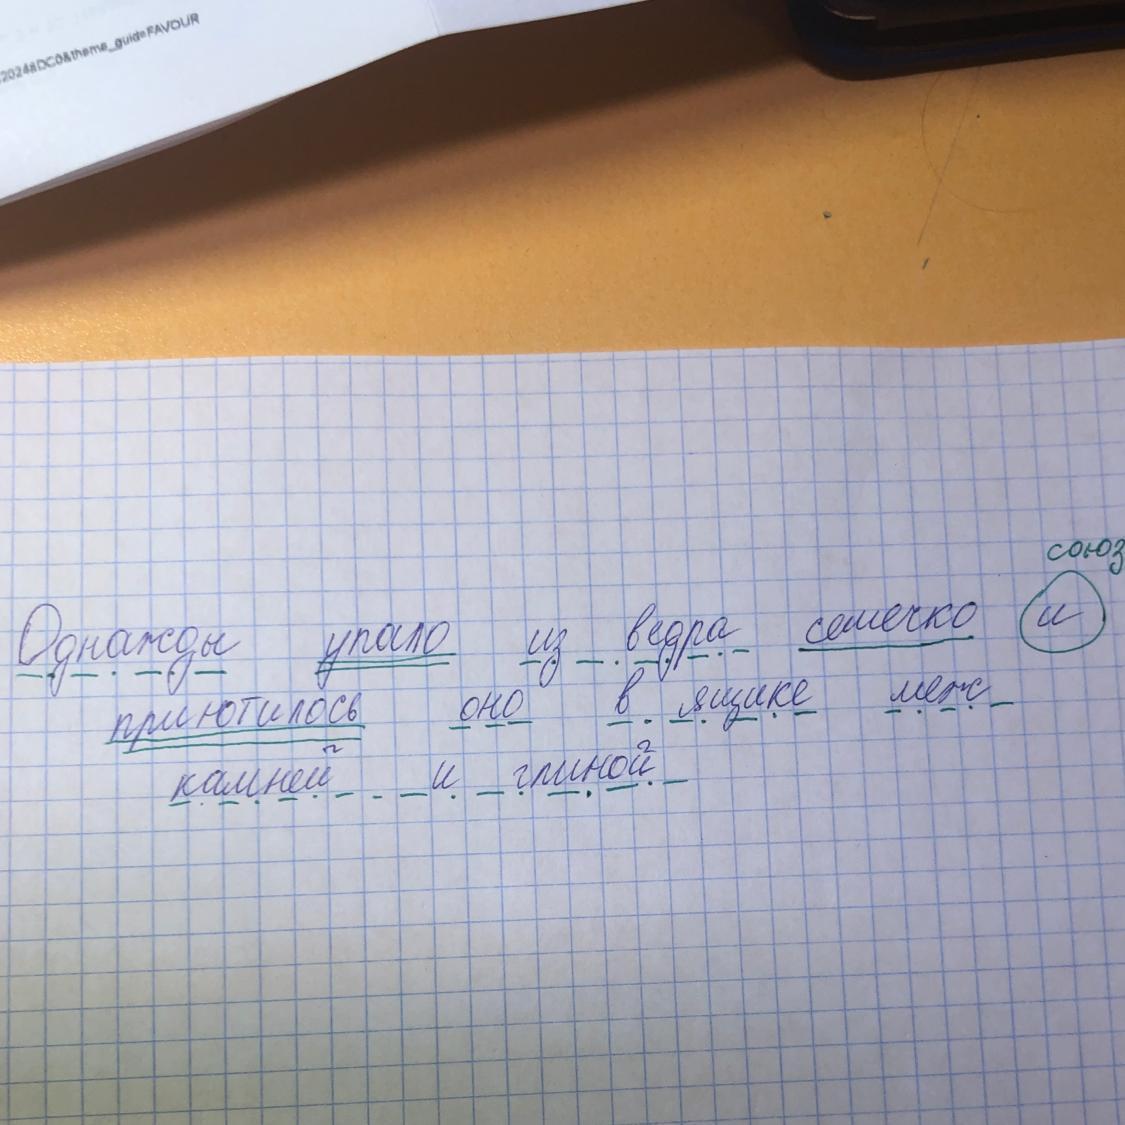 20248DC0&theme_guid=FAVOUR
союз
Однажды упало из ведра семечко и
приютилось оно в ящике меж
камней и глиной